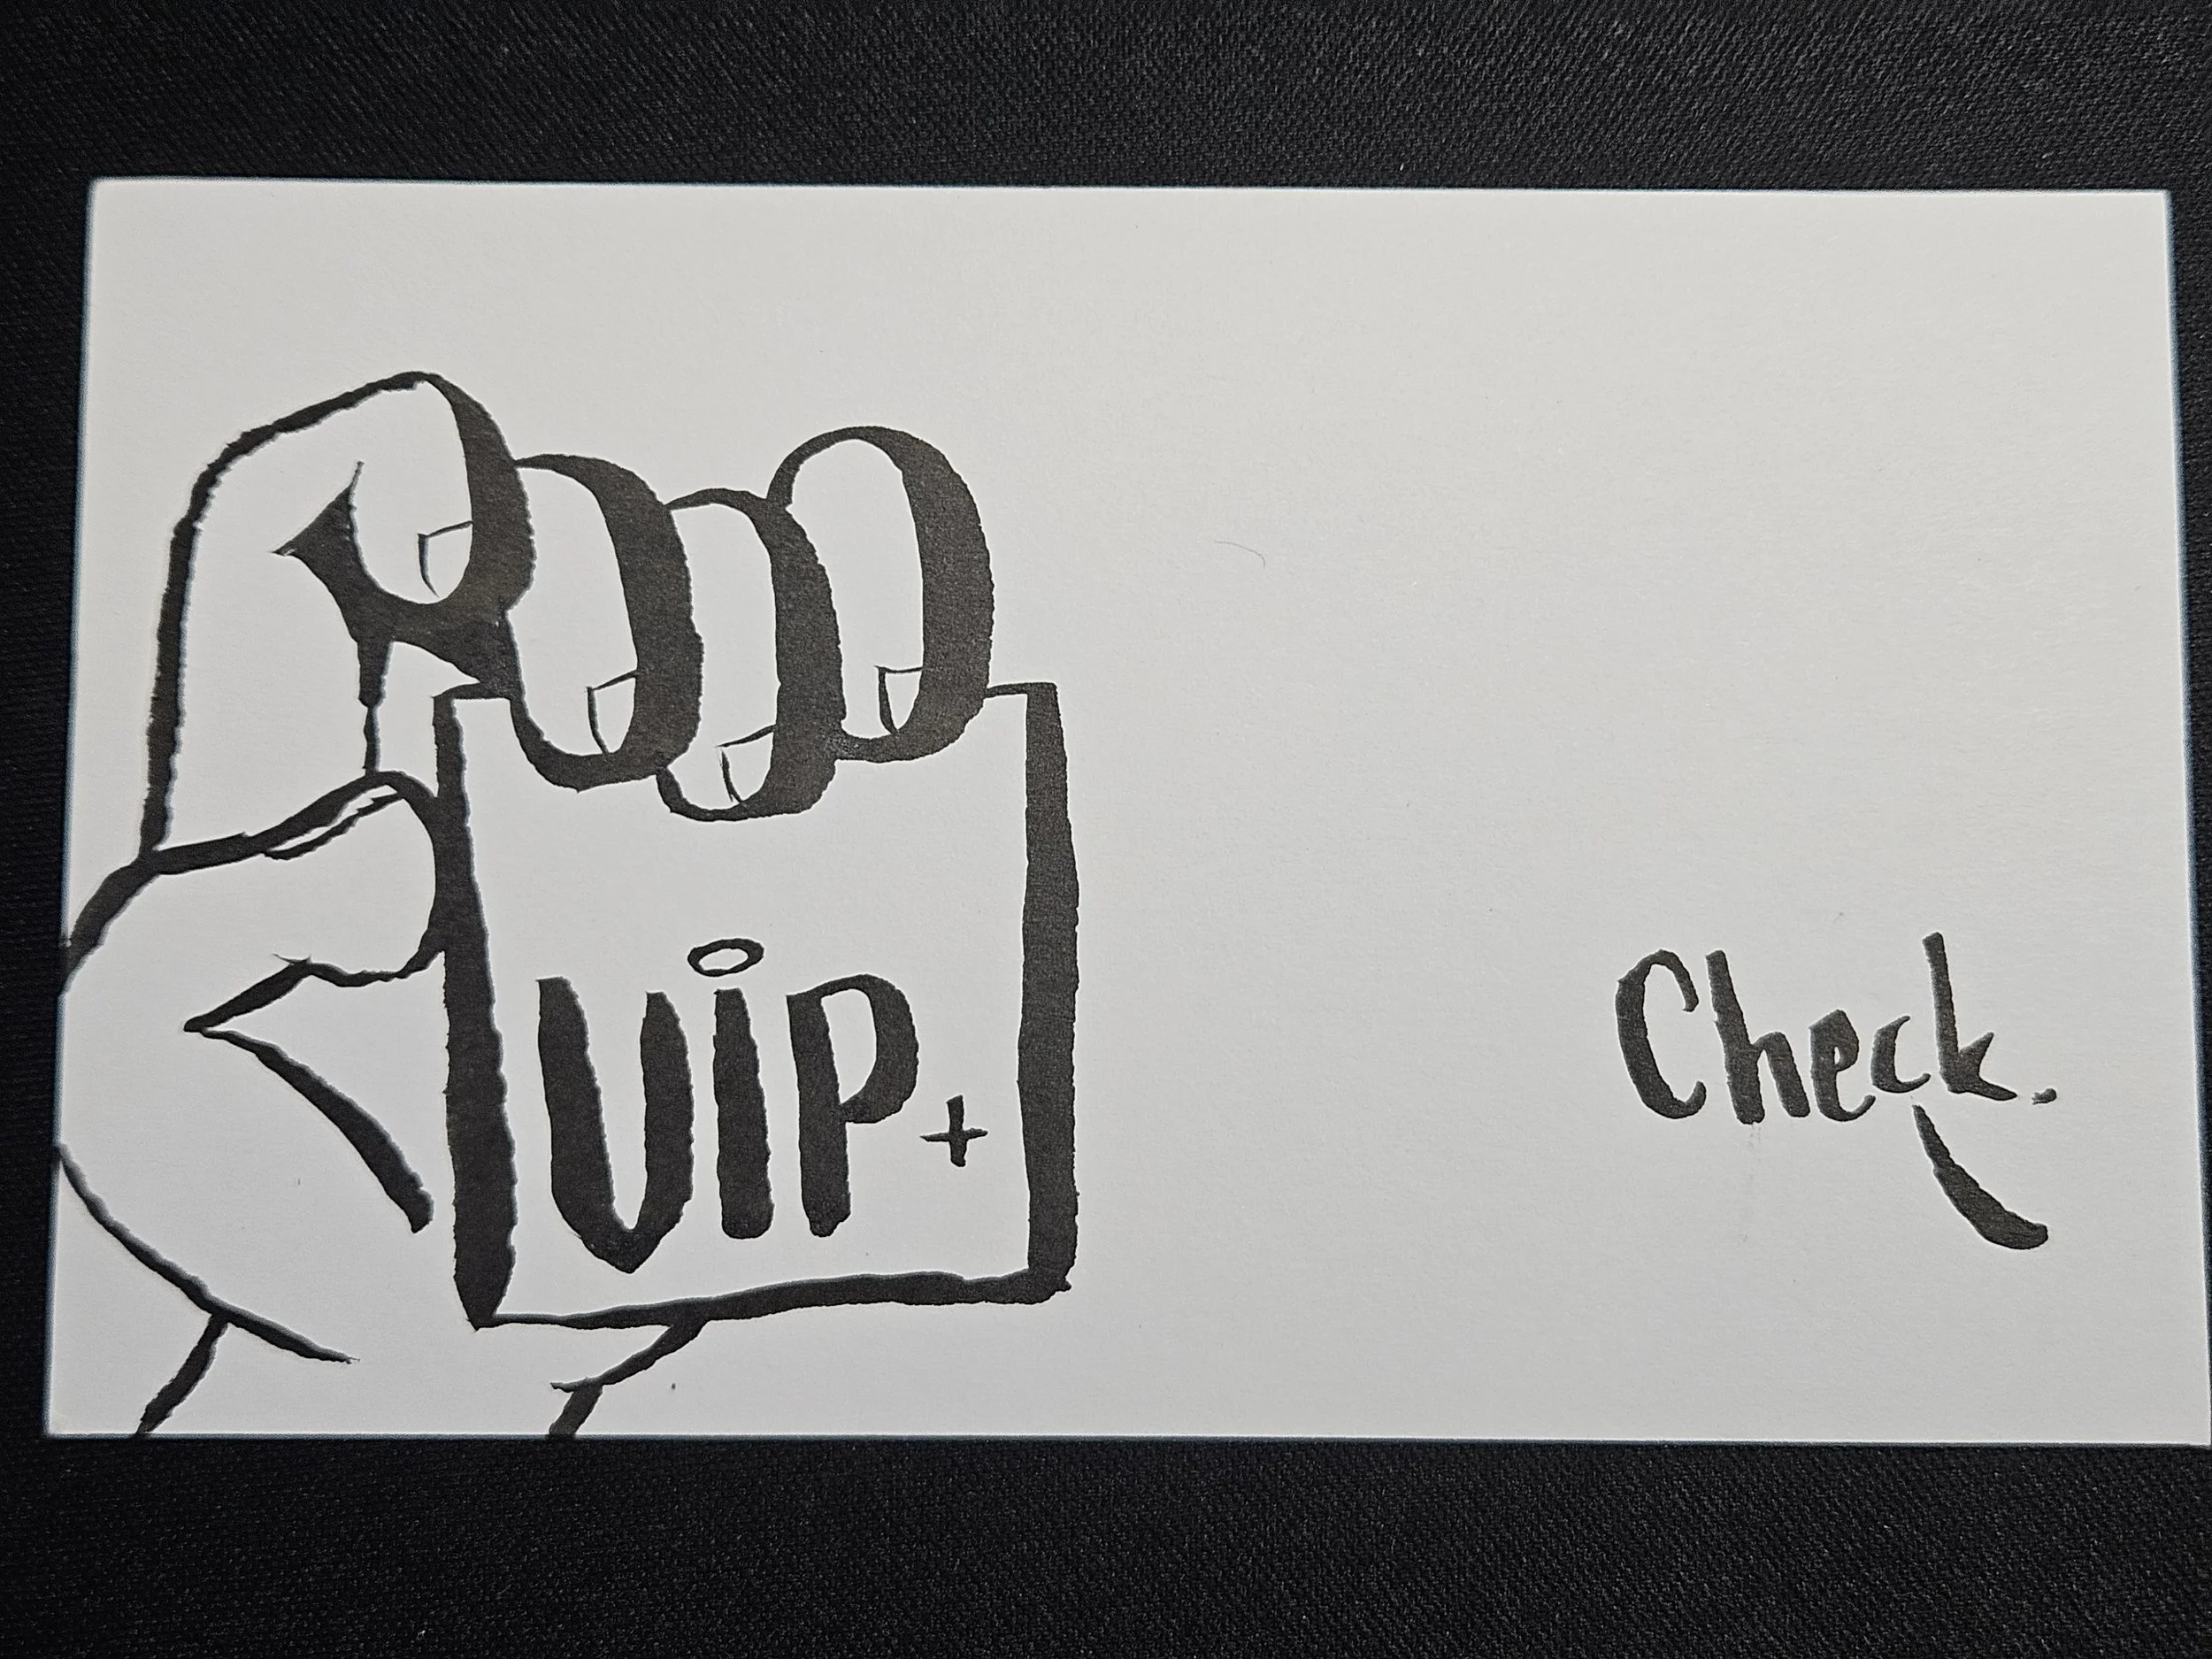 ViP+
Check.